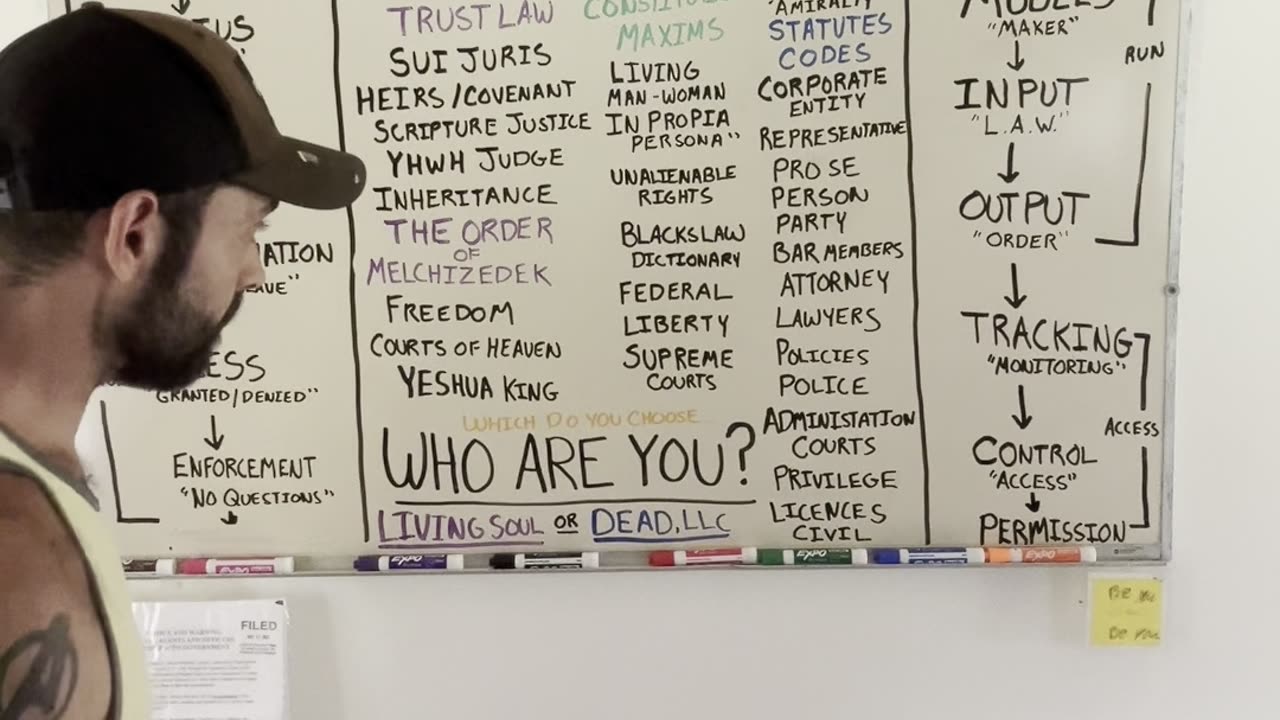 ENFORCEMENT
"NO QUESTIONS"
GRANTED/DENIED"
TRUST LAW
SUI JURIS
HEIRS/COVENANT
SCRIPTURE JUSTICE
YHWH JUDGE
INHERITANCE
THE ORDER
OF
MELCHIZEDEK
FREEDOM
COURTS OF HEAVEN
YESHUA KING
MAXIMS
LIVING
MAN-WOMAN
IN PROPIA
PERSONA"
UNALIENABLE
RIGHTS
BLACKS LAW
DICTIONARY
FEDERAL
LIBERTY
SUPREME
COURTS
WHICH DO YOU CHOOSE
WHO ARE YOU?
LIVING SOUL OR DEAD, LLC
"AMIRALTY
STATUTES
CODES
CORPORATE
ENTITY
REPRESENTATIVE
PRO SE
PERSON
PARTY
BAR MEMBERS
ATTORNEY
LAWYERS
POLICIES
POLICE
ADMINISTATION
COURTS
PRIVILEGE
LICENCES
CIVIL
MODELS
"MAKER"
RUN
INPUT
"L.A.W."
OUTPUT
"ORDER"
TRACKING
"MONITORING"
ACCESS
CONTROL
"ACCESS"
PERMISSION
EXPO
EXPO
EXPO
EXPO
EXPO
EXPO
FILED